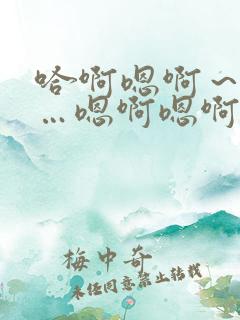 哈啊嗯啊～
…嗯啊嗯啊
梅中奇
未经同意禁止转载